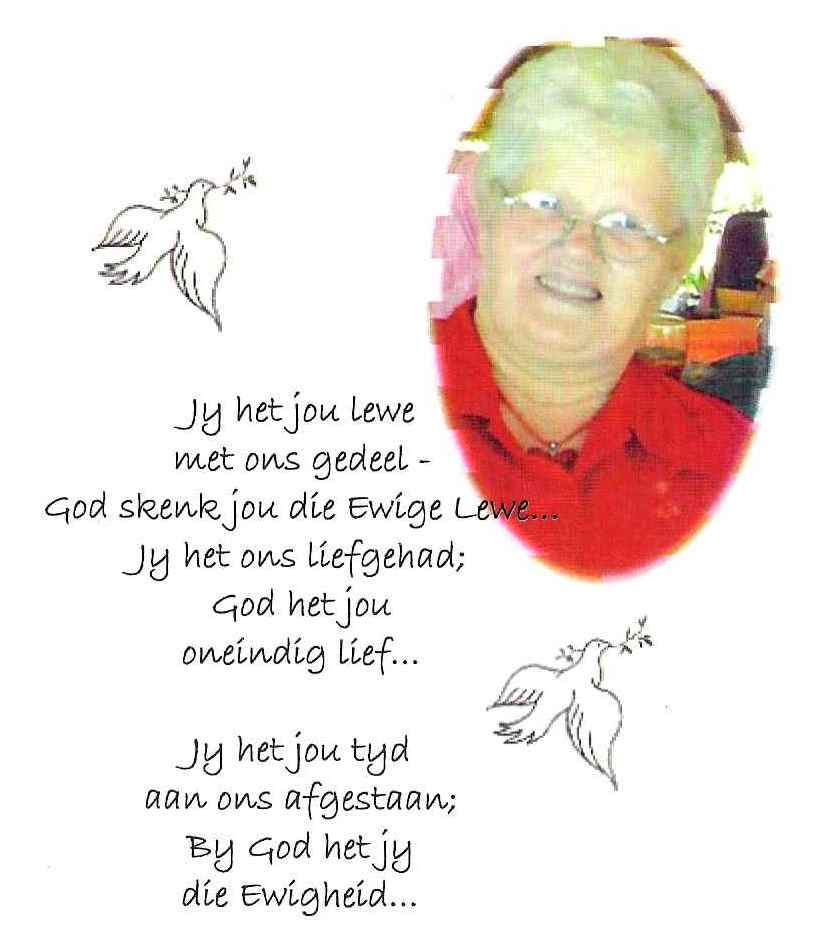 Jy het jou lewe
met ons gedeel -
God skenk jou die Ewige Lewe...
Jy het ons liefgehad;
God het jou
oneindig lief...
Jy het jou tyd
aan ons afgestaan;
By God het jy
die Ewigheid...